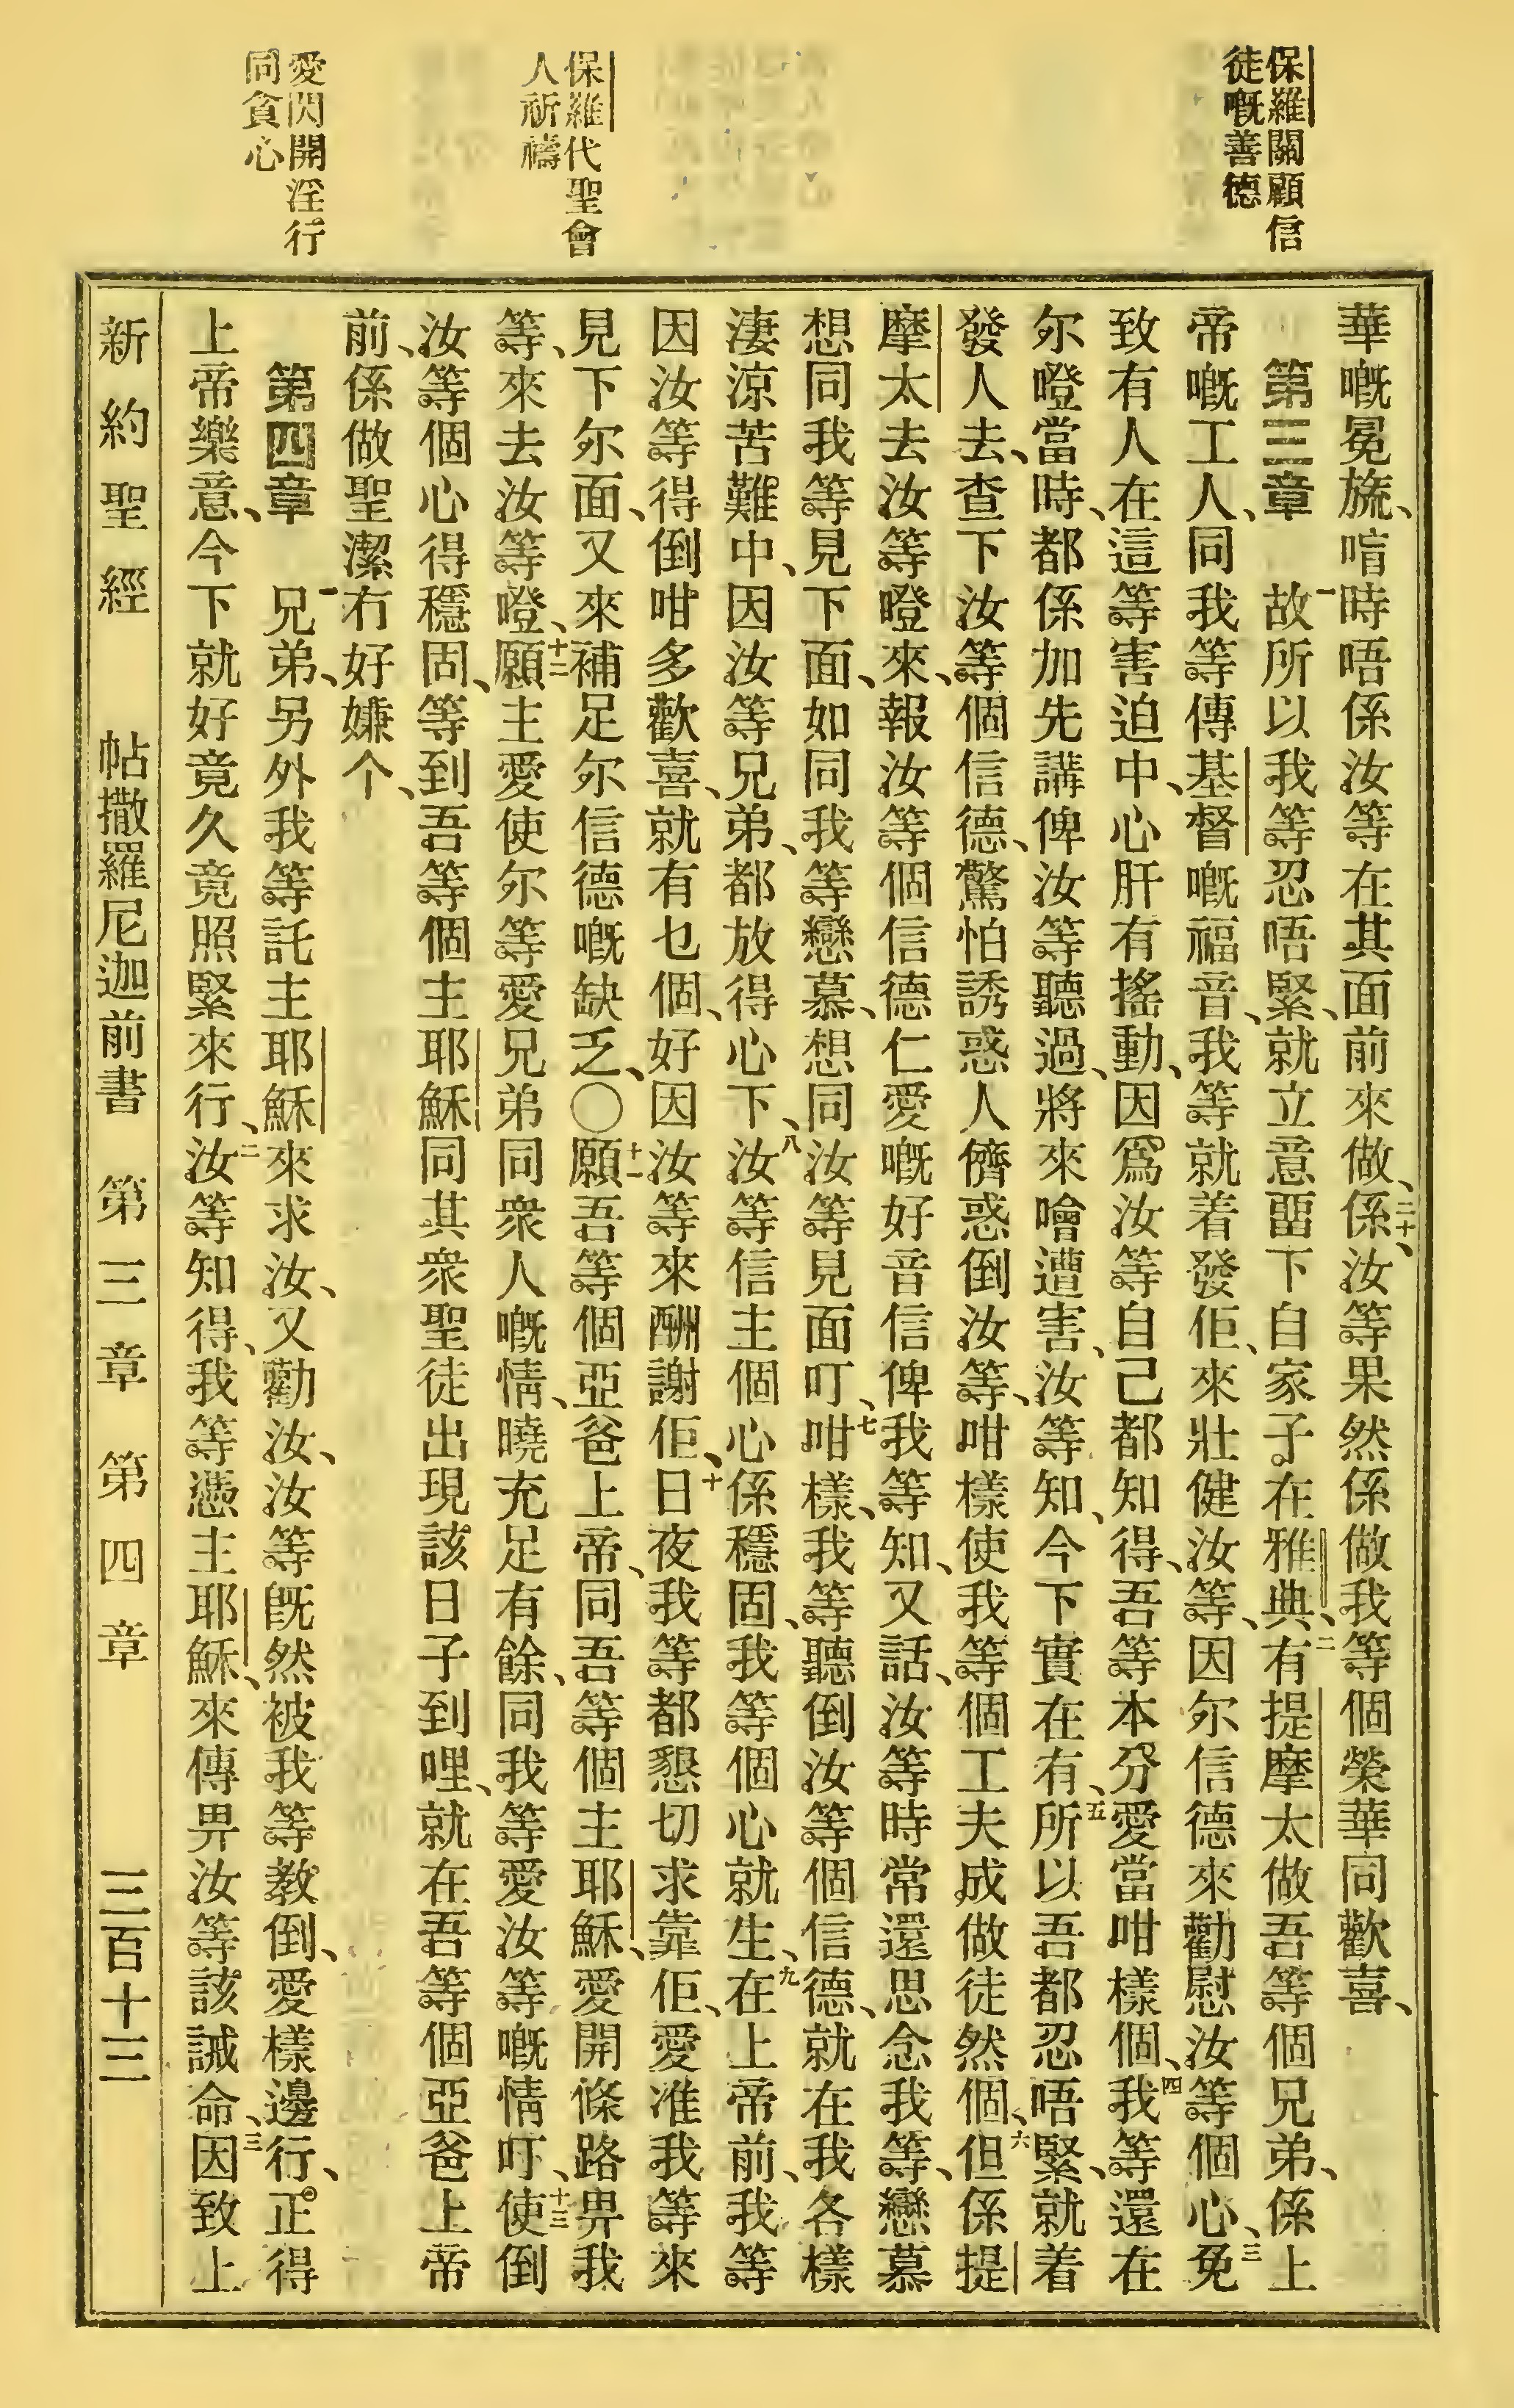 保羅關顧信
徒嘅善德
保羅代聖會
人祈禱
愛閃開淫行
同貪心
華嘅冕旒、唁時唔係汝等在其面前來做、二十、係汝等果然係做我等個榮華同歡喜、
第三章　一故所以我等忍唔緊、就立意畱下自家子在雅典、二有提摩太做吾等個兄弟、係上
帝嘅工人、同我等傳基督嘅福音、我等就着發佢、來壯健汝等、因尔信德來勸慰汝等個心、三免
致有人在這等害迫中、心肝有搖動、因爲汝等自己都知得、吾等本分愛當咁樣個、四我等還在
尔嶝當時、都係加先講俾汝等聽過、將來噲遭害、汝等知、今下實在有、五所以吾都忍唔緊、就着
發人去、查下汝等個信德、驚怕誘惑人儕惑倒汝等、咁樣使我等個工夫成做徒然個、六但係提
摩太去汝等嶝來、報汝等個信德仁愛嘅好音信俾我等知、又話、汝等時常還思念我等、戀慕
想同我等見下面、如同我等戀慕、想同汝等見面叮、七咁樣、我等聽倒汝等個信德、就在我各樣
淒涼苦難中、因汝等兄弟、都放得心下、八汝等信主個心係穩固、我等個心就生、九在上帝前、我等
因汝等得倒咁多歡喜、就有乜個、好因汝等來酬謝佢、十日夜我等都懇切求靠佢、愛准我等來
見下尔面、又來補足尔信德嘅缺乏、〇十一願吾等個亞爸上帝、同吾等個主耶穌、愛開條路畀我
等、來去汝等嶝、十二願主愛使尔等愛兄弟同衆人嘅情、曉充足有餘、同我等愛汝等嘅情叮、十三使倒
汝等個心得穩固、等到吾等個主耶穌同其衆聖徒出現該日子到哩、就在吾等個亞爸上帝
前、係做聖潔冇好嫌个、
第四章　一兄弟、另外我等託主耶穌來求汝、又勸汝、汝等既然被我等教倒、愛樣邊行、正得
上帝樂意、今下就好竟久竟照緊來行、二汝等知得、我等憑主耶穌、來傳畀汝等該誡命、三因致上
新約聖經　帖撒羅尼迦前書　第三章　第四章　三百十三